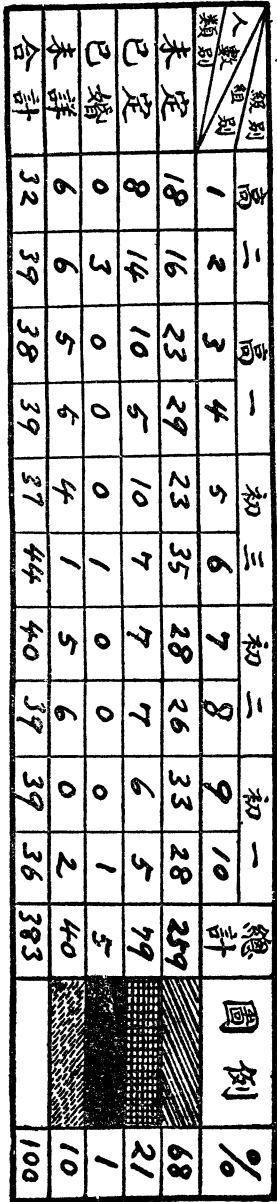 級別 高二 高一 初三 初二 初一 總計 圖例 %
人數 組別 類別 1 2 3 4 5 6 7 8 9 10
未定 18 16 23 29 23 35 28 26 33 28 259 68
已定 8 14 10 5 10 7 7 7 6 5 79 21
已婚 0 3 0 0 0 1 0 0 0 1 5 1
未詳 6 6 5 5 4 1 5 6 0 2 40 10
合計 32 39 38 39 37 44 40 39 39 36 383 100